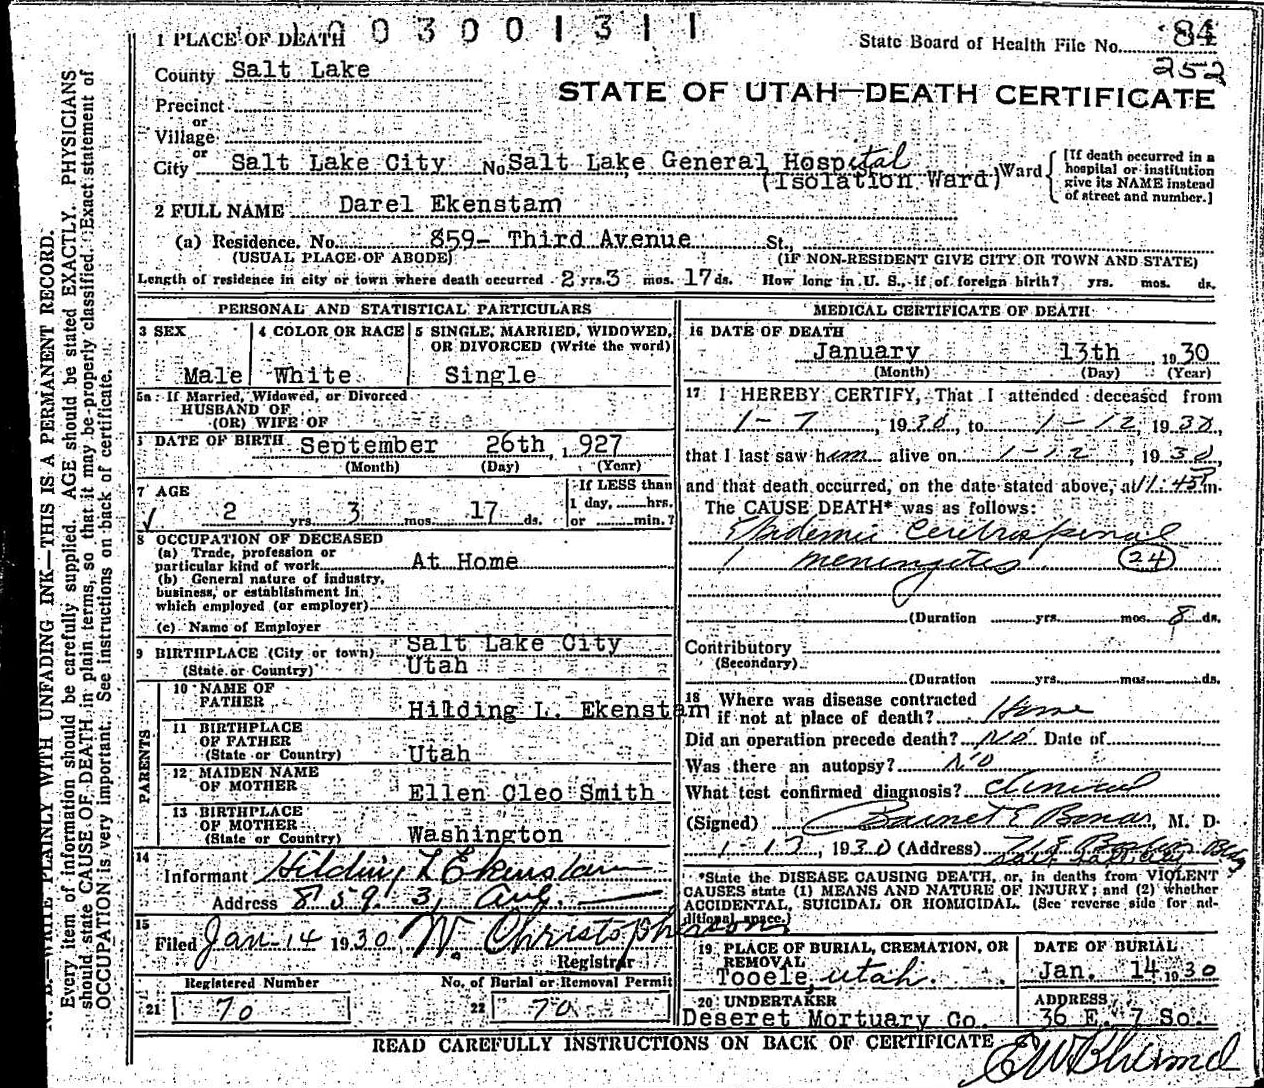 003001311
1 PLACE OF DEATH
State Board of Health File No. 84
252
County Salt Lake
STATE OF UTAH—DEATH CERTIFICATE
Precinct
or
Village
or
City Salt Lake City No. Salt Lake General Hospital
(Isolation Ward) Ward
[If death occurred in a hospital or institution give its NAME instead of street and number.]
2 FULL NAME Darel Ekenstam
(a) Residence. No. 859- Third Avenue St.,
(USUAL PLACE OF ABODE) (IF NON-RESIDENT GIVE CITY OR TOWN AND STATE)
Length of residence in city or town where death occurred 2 yrs. 3 mos. 17 ds. How long in U. S., if of foreign birth? yrs. mos. ds.
PERSONAL AND STATISTICAL PARTICULARS
3 SEX
Male
4 COLOR OR RACE
White
5 SINGLE, MARRIED, WIDOWED, OR DIVORCED (Write the word)
Single
5a If Married, Widowed, or Divorced
HUSBAND OF
(OR) WIFE OF
6 DATE OF BIRTH September 26th, 1927
(Month) (Day) (Year)
7 AGE
2 yrs. 3 mos. 17 ds.
If LESS than
1 day, hrs.
or min.?
8 OCCUPATION OF DECEASED
(a) Trade, profession or
particular kind of work At Home
(b) General nature of industry,
business, or establishment in
which employed (or employer)
(c) Name of Employer
9 BIRTHPLACE (City or town) Salt Lake City
(State or Country) Utah
PARENTS
10 NAME OF
FATHER Hilding L. Ekenstam
11 BIRTHPLACE
OF FATHER
(State or Country) Utah
12 MAIDEN NAME
OF MOTHER Ellen Cleo Smith
13 BIRTHPLACE
OF MOTHER
(State or Country) Washington
14
Informant Hilding L Ekenstam
Address 859. 3, Ave.
15
Filed Jan-14 1930. W. Christopherson
Registrar
Registered Number
21 70
No. of Burial or Removal Permit
22 70
MEDICAL CERTIFICATE OF DEATH
16 DATE OF DEATH
January 13th 1930
(Month) (Day) (Year)
17 I HEREBY CERTIFY, That I attended deceased from
1-7, 1930, to 1-12, 1930,
that I last saw him alive on 1-12, 1930,
and that death occurred, on the date stated above, at 11:45P m.
The CAUSE DEATH* was as follows:
Epidemic Cerebrospinal
meningitis (24)
(Duration yrs. mos. 8 ds.
Contributory
(Secondary)
(Duration yrs. mos. ds.
18 Where was disease contracted
if not at place of death? Home
Did an operation precede death? No Date of
Was there an autopsy? No
What test confirmed diagnosis? Clinical
(Signed) Barnet E Bonar, M. D.
1-13, 1930 (Address) Bldg
*State the DISEASE CAUSING DEATH, or, in deaths from VIOLENT
CAUSES state (1) MEANS AND NATURE OF INJURY; and (2) whether
ACCIDENTAL, SUICIDAL OR HOMICIDAL. (See reverse side for ad-
ditional space.)
19 PLACE OF BURIAL, CREMATION, OR
REMOVAL
Tooele, Utah.
DATE OF BURIAL
Jan. 14 1930
20 UNDERTAKER
Deseret Mortuary Co.
ADDRESS
36 E. 7 So.
READ CAREFULLY INSTRUCTIONS ON BACK OF CERTIFICATE
N. B.—WRITE PLAINLY WITH UNFADING INK—THIS IS A PERMANENT RECORD.
Every item of information should be carefully supplied. AGE should be stated EXACTLY. PHYSICIANS
should state CAUSE OF DEATH in plain terms, so that it may be properly classified. Exact statement of
OCCUPATION is very important. See instructions on back of certificate.